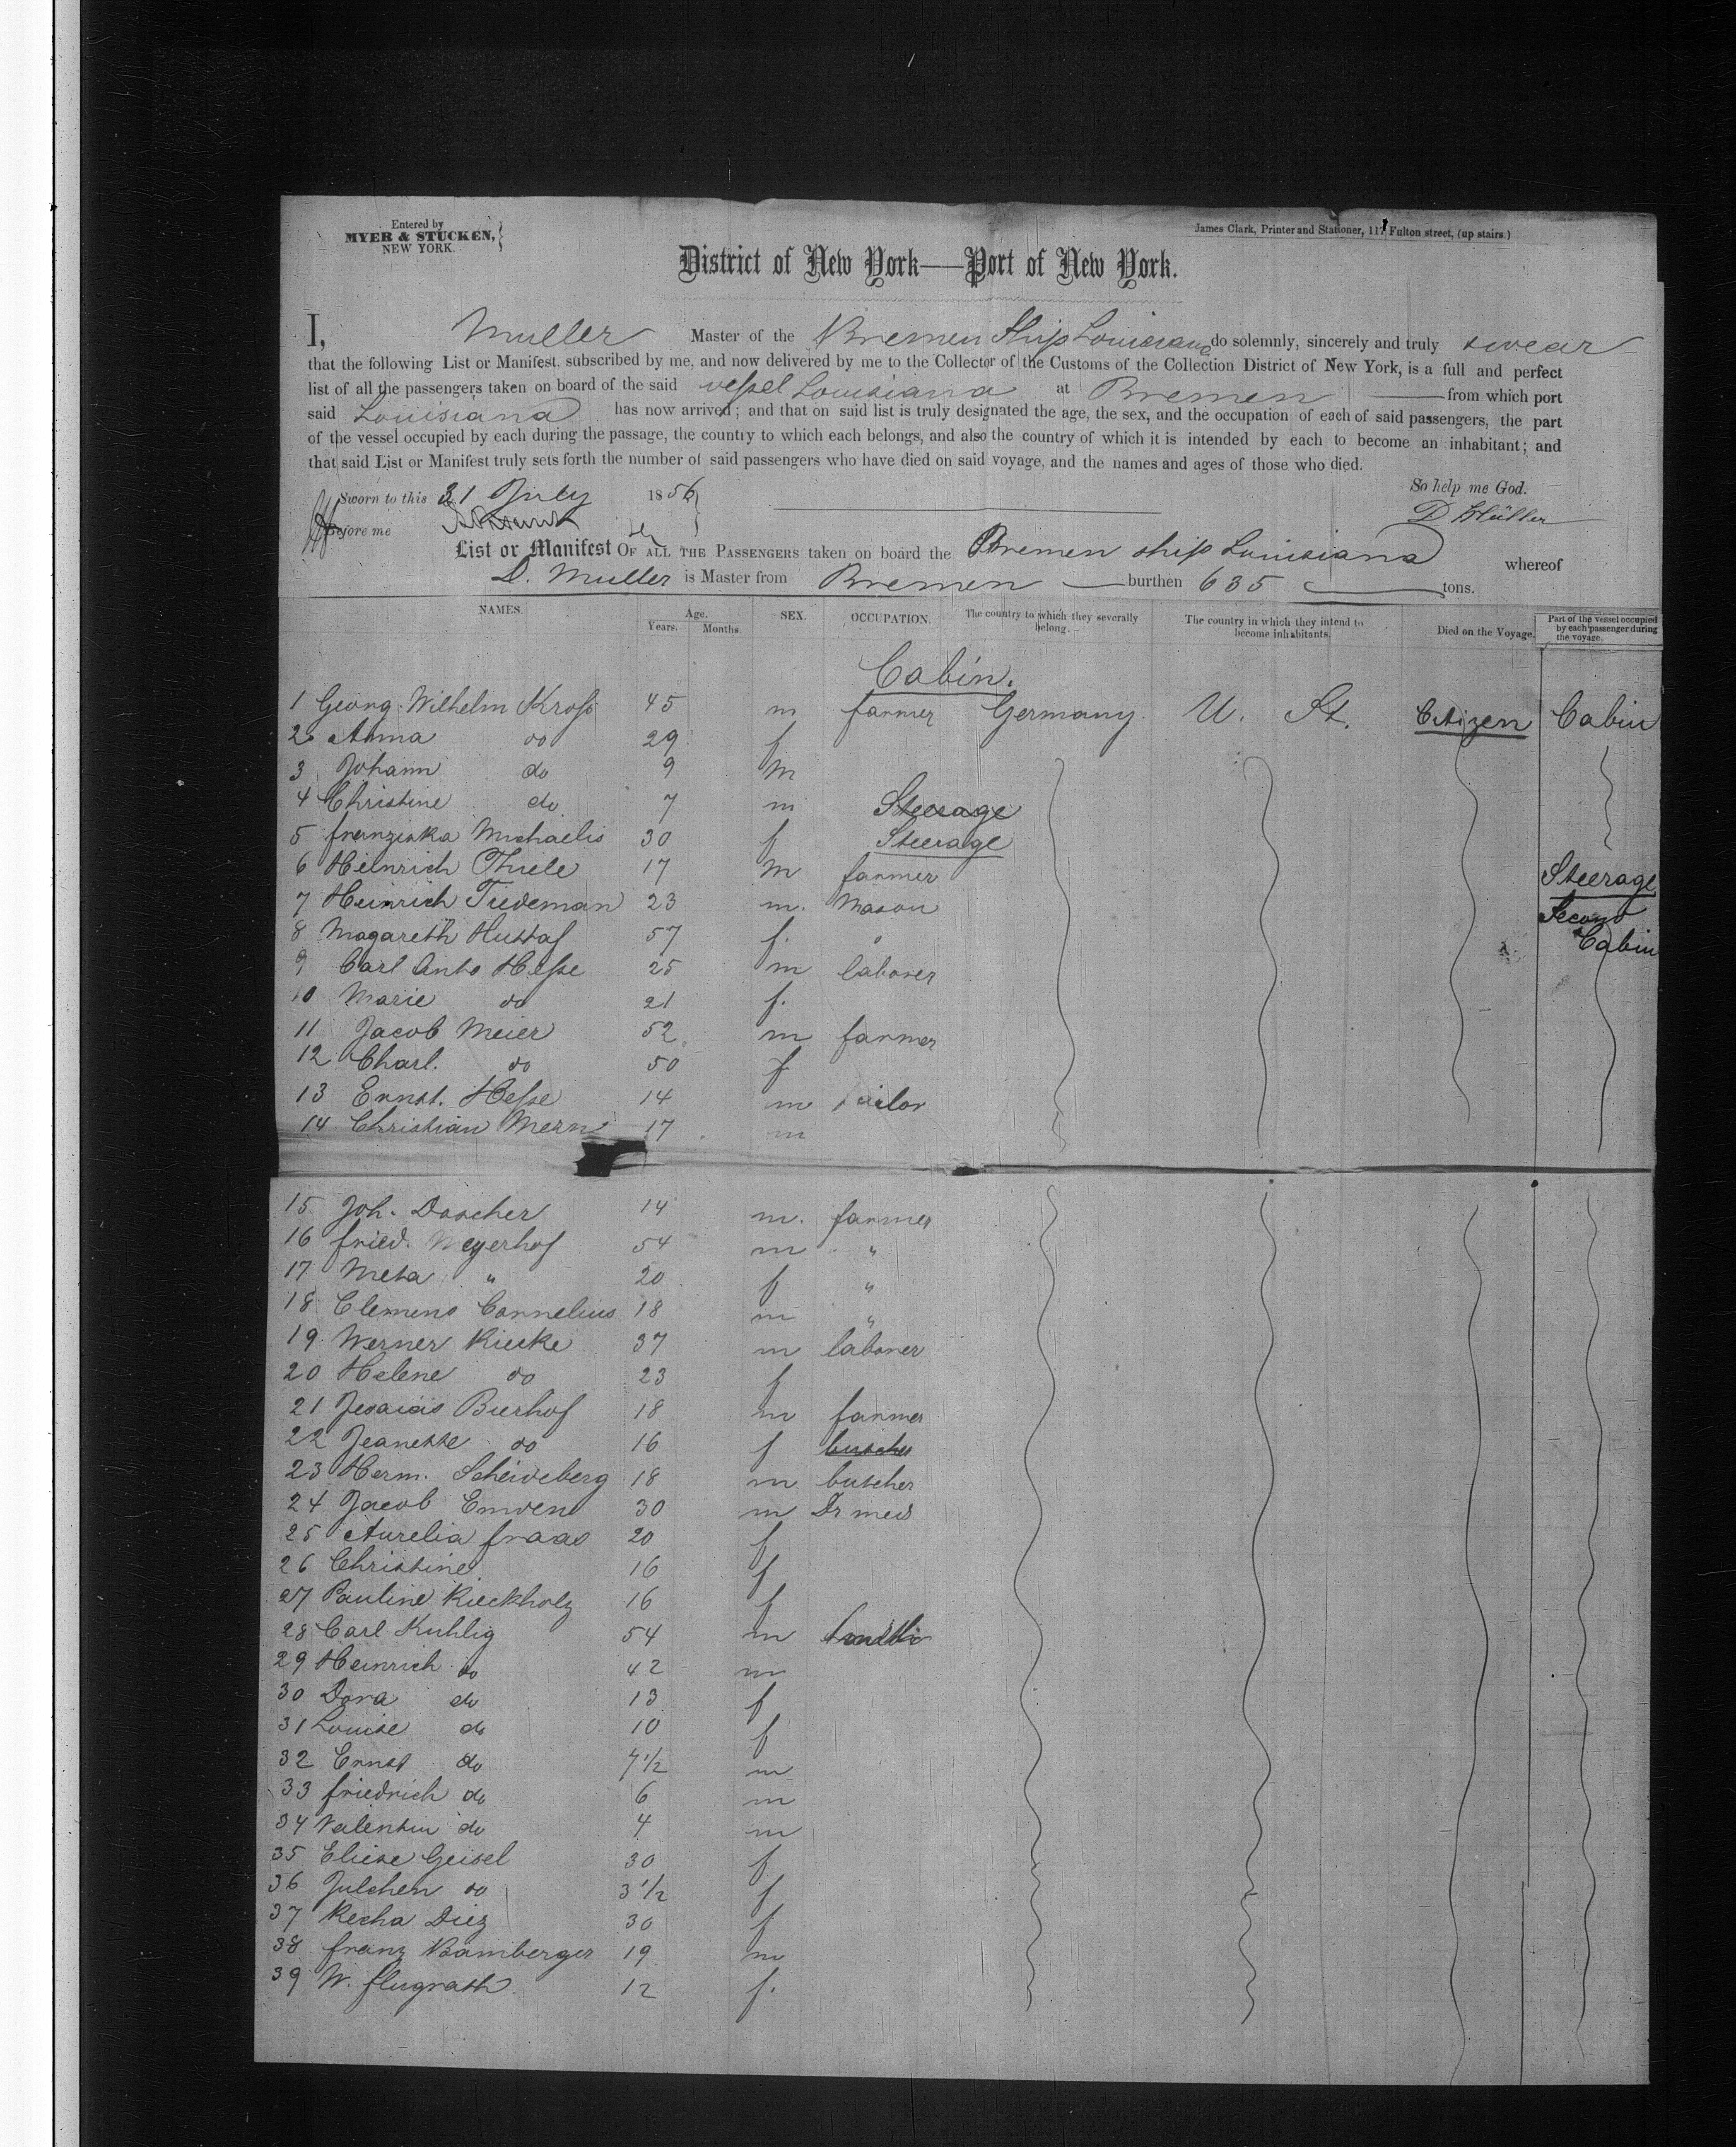 Entered by
MYER & STUCKEN,
NEW YORK.
James Clark, Printer and Stationer, 117 Fulton street, (up stairs.)
District of New York—Port of New York.
I, Muller Master of the Bremen Ship Louisiana do solemnly, sincerely and truly swear
that the following List or Manifest, subscribed by me, and now delivered by me to the Collector of the Customs of the Collection District of New York, is a full and perfect
list of all the passengers taken on board of the said vessel Louisiana at Bremen from which port
said Louisiana has now arrived; and that on said list is truly designated the age, the sex, and the occupation of each of said passengers, the part
of the vessel occupied by each during the passage, the country to which each belongs, and also the country of which it is intended by each to become an inhabitant; and
that said List or Manifest truly sets forth the number of said passengers who have died on said voyage, and the names and ages of those who died.
Sworn to this 31 July 1856
So help me God.
Before me
D Müller
List or Manifest OF ALL THE PASSENGERS taken on board the Bremen ship Louisiana whereof
D. Muller is Master from Bremen burthen 635 tons.
NAMES. Age. Years. Months. SEX. OCCUPATION. The country to which they severally belong. The country in which they intend to become inhabitants. Died on the Voyage. Part of the vessel occupied by each passenger during the voyage.
Cabin.
1 Georg Wilhelm Kross 45 m farmer Germany. U. St. Citizen Cabin
2 Anna do 29 f
3 Johann do 9 m
4 Christine do 7 m Steerage
5 Franziska Michaelis 30 f Steerage
6 Heinrich Thiele 17 m farmer Steerage
7 Heinrich Tiedeman 23 m. Mason Second
8 Magareth Hustaf 57 f. " Cabin
9 Carl Anto Hesse 25 m laborer
10 Marie do 21 f.
11 Jacob Meier 52 m farmer
12 Charl. do 50 f
13 Ernst. Hesse 14 m tailor
14 Christian Mern 17 m
15 Joh. Doscher 14 m. farmer
16 Fried. Meyerhof 54 m "
17 Meta " 20 f "
18 Clemens Cornelius 18 m "
19 Werner Kieske 37 m laborer
20 Helene do 23 f
21 Jesaias Bierhof 18 m farmer
22 Jeanette do 16 f butcher
23 Herm. Scheideberg 18 m butcher
24 Jacob Emden 30 m Dr med
25 Aurelia Fraas 20 f
26 Christine 16 f
27 Pauline Rieckholz 16 f
28 Carl Kuhlig 54 m
29 Heinrich do 42 m
30 Dora do 13 f
31 Louise do 10 f
32 Ernst do 7 1/2 m
33 Friedrich do 6 m
34 Valentin do 4 m
35 Eliese Geisel 30 f
36 Julchen do 3 1/2 f
37 Recha Diez 30 f
38 Franz Bamberger 19 m
39 W. Flugrath 12 f.